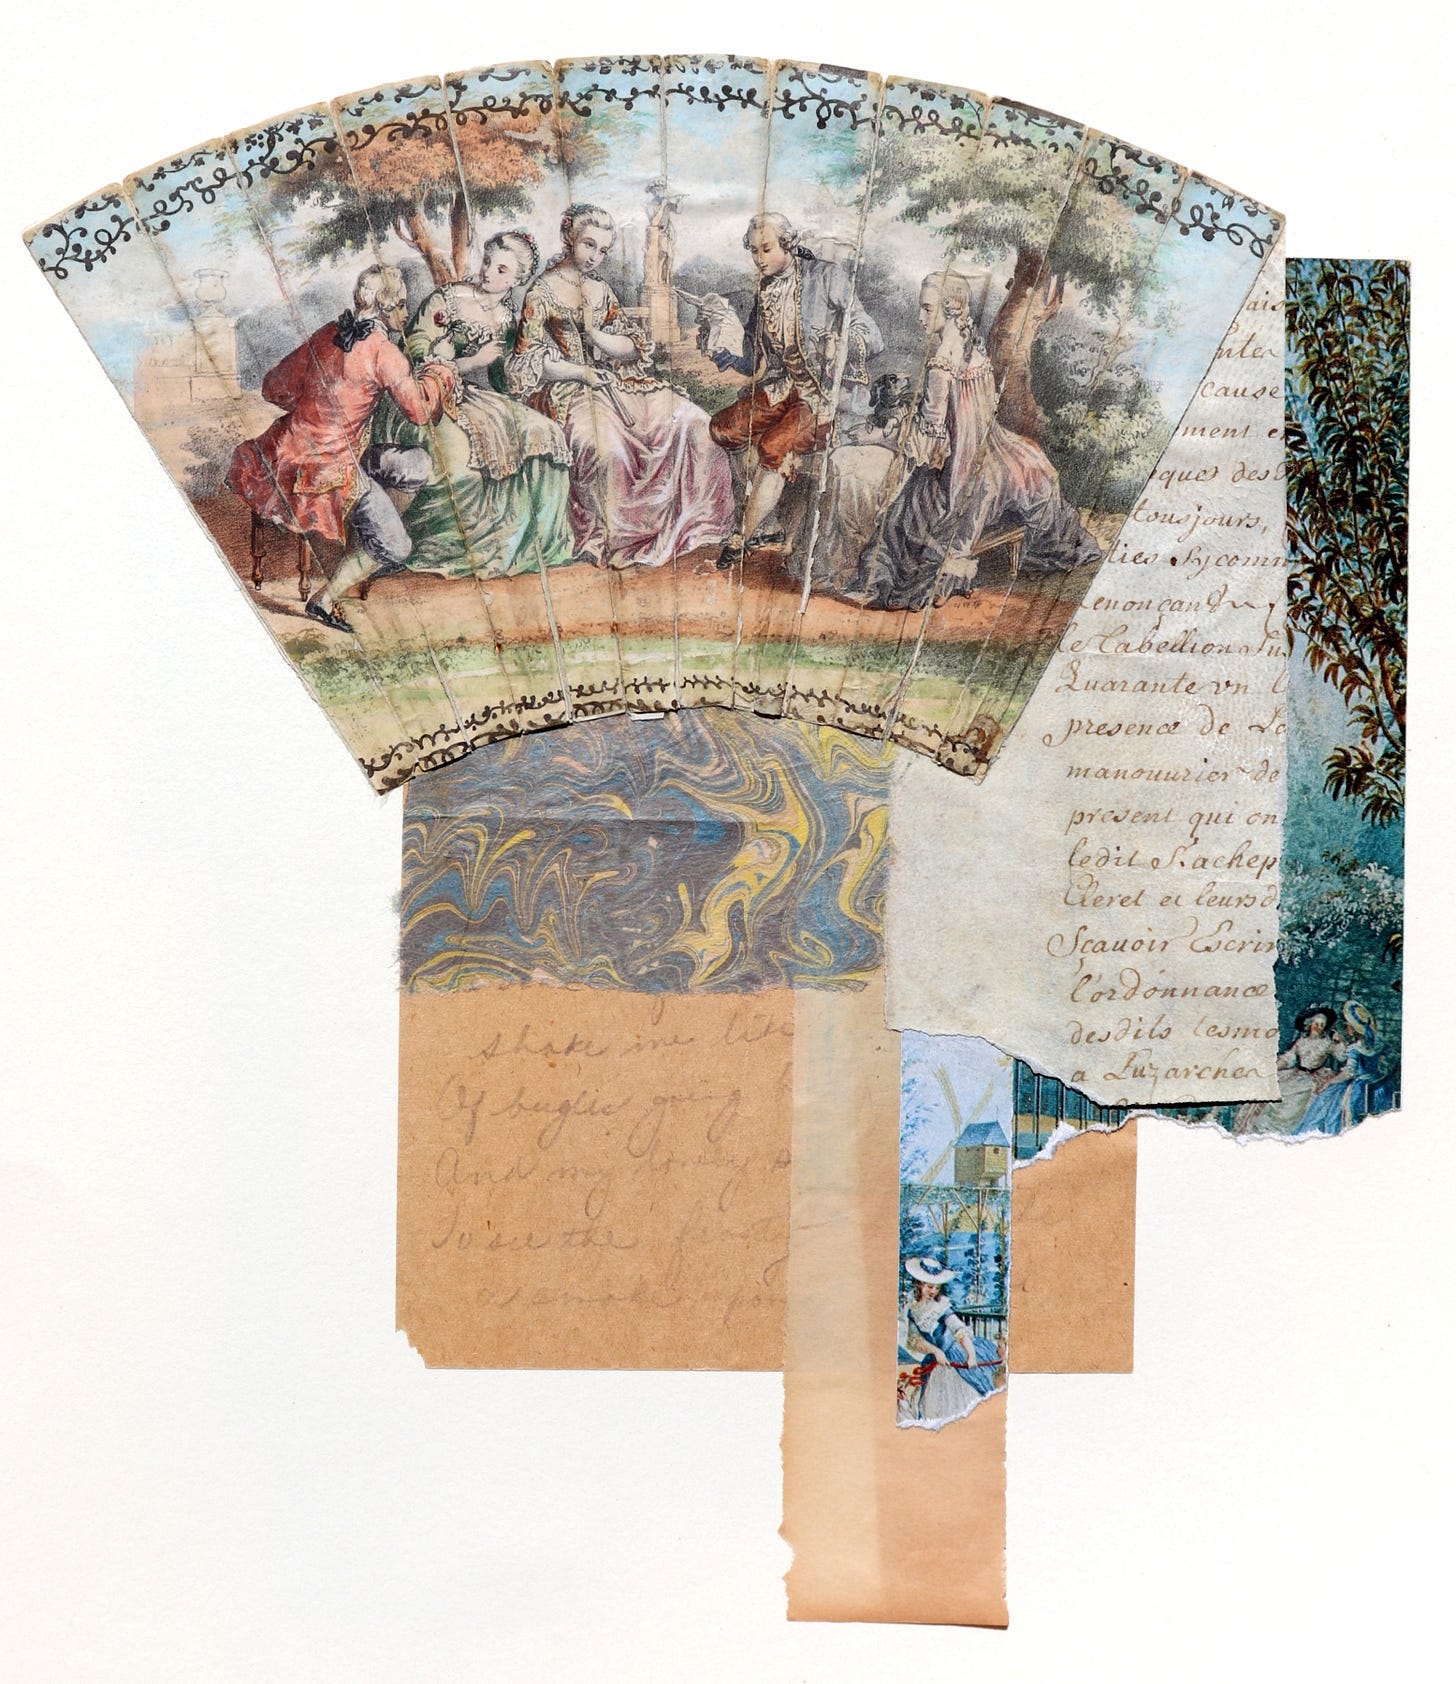 ais
ntea
cause
ment e
ques des
tousjours,
ties sycomm
enonçand
le Tabellion su
Quarante vn
presence de La
manouurier de
present qui on
ledit S. achep
Cleret et leurs d
Sçauoir Escrir
l'ordonnance
desdits tesmo
a Luzarches
shake me like
Of bugles going b
And my lonely s
To see the frosty
as smoke upon